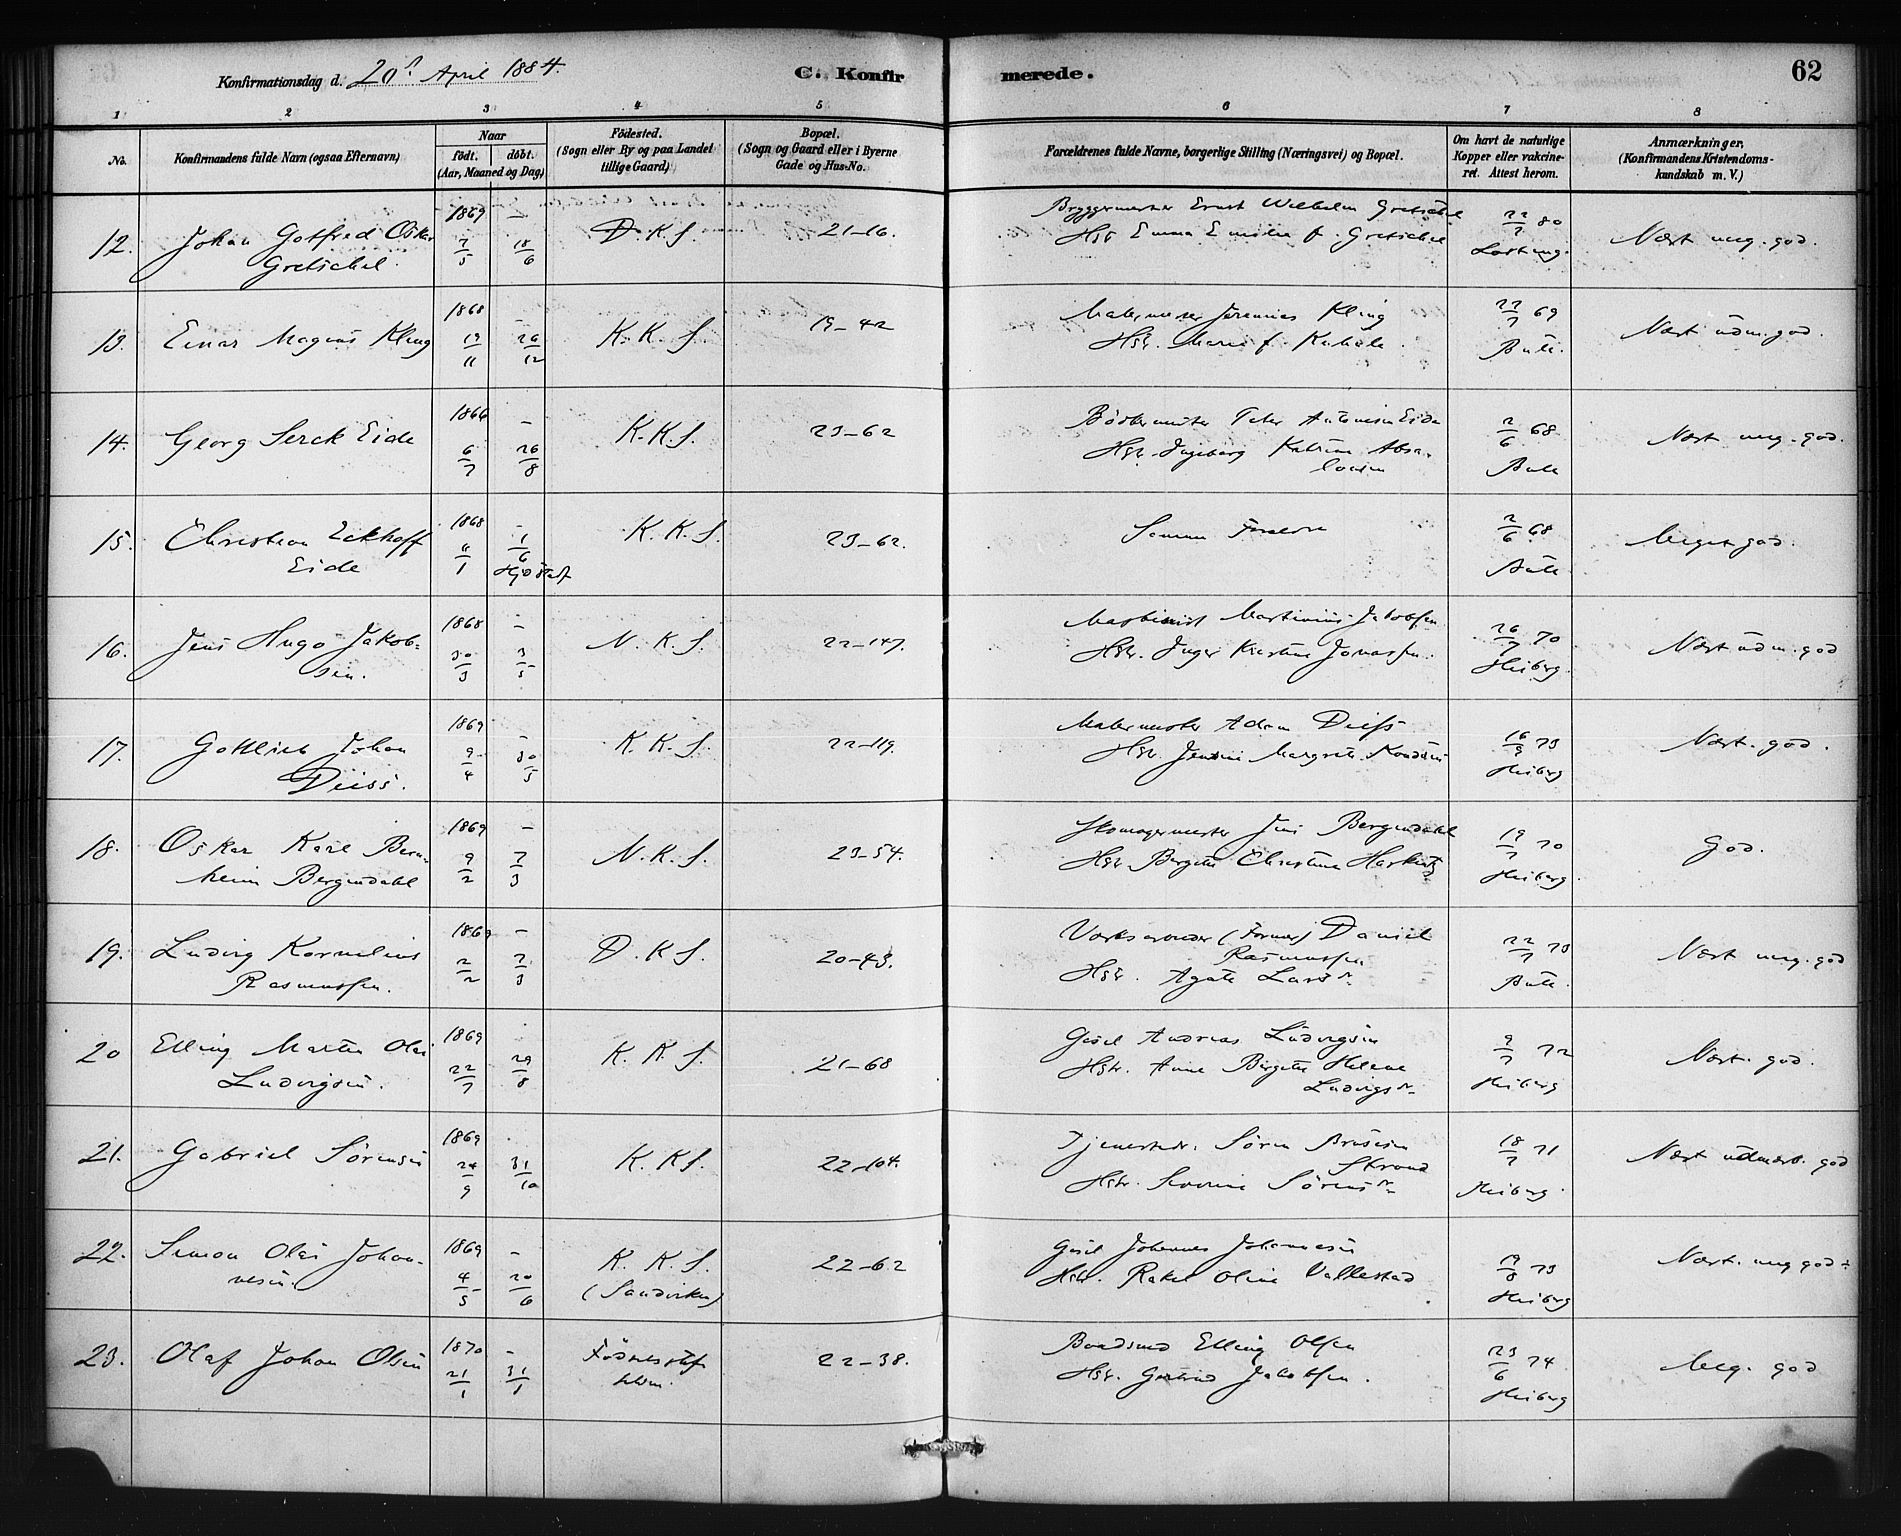 Konfirmationsdag d. 20de April 1884.
C. Konfirmerede.
62
1 2 3 4 5 6 7 8
No.
Konfirmandens fulde Navn (ogsaa Efternavn)
Naar
födt. döbt.
(Aar, Maaned og Dag)
Födested.
(Sogn eller By og paa Landet
tillige Gaard)
Bopæl.
(Sogn og Gaard eller i Byerne
Gade og Hus-No.
Forældrenes fulde Navne, borgerlige Stilling (Næringsvei) og Bopæl.
Om havt de naturlige
Kopper eller vakcine-
ret. Attest herom.
Anmærkninger,
(Konfirmandens Kristendoms-
kundskab m. V.)
12. Johan Gotfred Oskar
Gretschel.
1869 – 7/5 18/6
D.K.S.
21–16.
Bryggermester Ernst Wilhelm Gretschel
Hstr Emma Emilie f. Gretschel
22/7 80
Næst meg. god.
13. Einar Magnus Kling
1868 – 19/11 26/12
K.K.S.
19–42
Malermester Jeremias Kling
Hstr. Marie f.
22/7 69
Næst udm. god.
14. Georg Serck Eide
1866 – 6/7 26/8
K.K.S.
23–62
Bödkermester Peter Antonisen Eide
Hstr. Ingeborg Katrine Absa-
lonsen
2/6 68
Næst meg. god.
15. Christian Eckhoff
Eide
1868 – 6/1 1/6
Hjdöbt
K.K.S.
23–62.
Samme Foreldre
2/6 68
Meget god.
16. Jens Hugo Jakob-
sen.
1868 – 30/3 3/5
N.K.S.
22–147.
Maskinist Martinius Jakobsen
Hstr. Inger Kirstine Jonassen.
26/7 70
Heiberg.
Næst udm. god
17. Gottlieb Johan
Deiss.
1869 – 9/4 30/5
K.K.S.
22–119.
Malermester Adam Deiss
Hstr. Jensine Margrete
16/9 73
Heiberg
Næst. god.
18. Oskar Karl Bern-
heim Bergendahl
1869 – 9/2 7/3
N.K.S.
23–54.
Skomagermester Jens Bergendahl
Hstr. Bergitte Christine
19/7 70
Heiberg.
God.
19. Ludvig Kornelius
Rasmussen.
1869 – 2/2 7/3
D.K.S.
20–43.
Værksarbeider (Former) Daniel
Rasmussen
Hstr. Agate Larsdr.
22/7 73
Næst meg. god
20 Elling Martin Olai
Ludvigsen.
1869 22/7 29/8
K.K.S.
21–68
Gjsel Andreas Ludvigsen
Hstr. Anne Bergitte Helene
Ludvigsdr.
9/7 72
Heiberg
Næst. god.
21. Gabriel Sörensen
1869 24/9 31/10
K.K.S.
22–104.
Tjenestedr. Sören
Strand
Hstr. Severine Sörensdr.
18/7 71
Heiberg.
Næst udmærk. god
22. Simon Olai Johan-
nesen.
1869 – 4/5 20/6
K.K.S.
(Sandviken)
22–62
Gjsel Johannes Johannesen
Hstr. Rakel Oline Vallestad
19/8 73
Heiberg
Næst. meg god ÷
23. Olaf Johan Olsen
1870 – 21/1 31/1
Födselsstif-
telsen.
22–38.
Baadsmd Elling Olsen
Hstr. Gertrud Jakobsen.
23/6 74
Heiberg
Meg. god